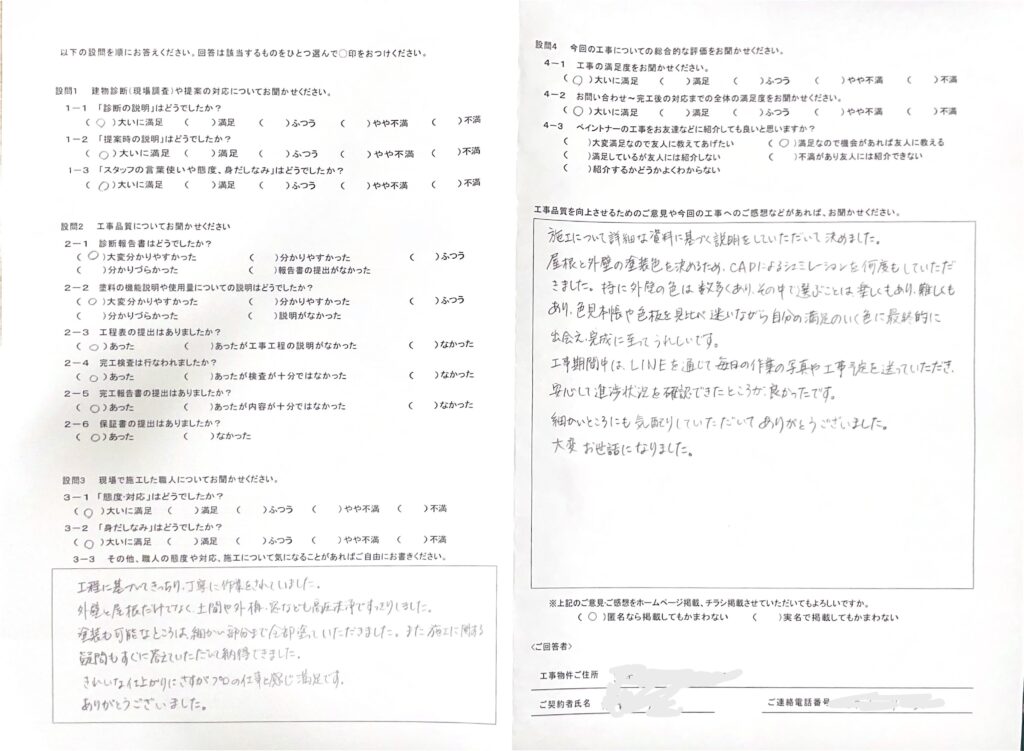 以下の設問を順にお答えください。回答は該当するものをひとつ選んで○印をおつけください。
設問1 建物診断(現場調査)や提案の対応についてお聞かせください。
1-1 「診断の説明」はどうでしたか?
(○)大いに満足 ( )満足 ( )ふつう ( )やや不満 ( )不満
1-2 「提案時の説明」はどうでしたか?
(○)大いに満足 ( )満足 ( )ふつう ( )やや不満 ( )不満
1-3 「スタッフの言葉使いや態度、身だしなみ」はどうでしたか?
(○)大いに満足 ( )満足 ( )ふつう ( )やや不満 ( )不満
設問2 工事品質についてお聞かせください
2-1 診断報告書はどうでしたか?
(○)大変分かりやすかった ( )分かりやすかった ( )ふつう
( )分かりづらかった ( )報告書の提出がなかった
2-2 塗料の機能説明や使用量についての説明はどうでしたか?
(○)大変分かりやすかった ( )分かりやすかった ( )ふつう
( )分かりづらかった ( )説明がなかった
2-3 工程表の提出はありましたか?
(○)あった ( )あったが工事工程の説明がなかった ( )なかった
2-4 完工検査は行なわれましたか?
(○)あった ( )あったが検査が十分ではなかった ( )なかった
2-5 完工報告書の提出はありましたか?
(○)あった ( )あったが内容が十分ではなかった ( )なかった
2-6 保証書の提出はありましたか?
(○)あった ( )なかった
設問3 現場で施工した職人についてお聞かせください。
3-1 「態度・対応」はどうでしたか?
(○)大いに満足 ( )満足 ( )ふつう ( )やや不満 ( )不満
3-2 「身だしなみ」はどうでしたか?
(○)大いに満足 ( )満足 ( )ふつう ( )やや不満 ( )不満
3-3 その他、職人の態度や対応、施工について気になることがあればご自由にお書きください。
工程に基づいてきっちり、丁寧に作業をされていました。
外壁と屋根だけでなく、土間や外構、窓なども高圧洗浄ですっきりしました。
塗装も可能なところは、細かい部分まで全部塗っていただきました。また施工に関する
疑問もすぐに答えていただいて納得できました。
きれいな仕上がりにさすがプロの仕事と感じ満足です。
ありがとうございました。
設問4 今回の工事についての総合的な評価をお聞かせください。
4-1 工事の満足度をお聞かせください。
(○)大いに満足 ( )満足 ( )ふつう ( )やや不満 ( )不満
4-2 お問い合わせ~完工後の対応までの全体の満足度をお聞かせください。
(○)大いに満足 ( )満足 ( )ふつう ( )やや不満 ( )不満
4-3 ペイントナーの工事をお友達などに紹介しても良いと思いますか?
( )大変満足なので友人に教えてあげたい (○)満足なので機会があれば友人に教える
( )満足しているが友人には紹介しない ( )不満があり友人には紹介できない
( )紹介するかどうかよくわからない
工事品質を向上させるためのご意見や今回の工事へのご感想などがあれば、お聞かせください。
施工について詳細な資料に基づく説明をしていただいて決めました。
屋根と外壁の塗装色を決めるため、CADによるシュミレーションを何度もしていただ
きました。特に外壁の色は数多くあり、その中で選ぶことは楽しくもあり、難しくも
あり、色見本帳や色板を見比べ迷いながら自分の満足のいく色に最終的に
出会え、完成に至ってうれしいです。
工事期間中は、LINEを通じて毎日の作業の写真や工事予定を送っていただき、
安心して進捗状況を確認できたところが良かったです。
細かいところにも気配りしていただいてありがとうございました。
大変お世話になりました。
※上記のご意見・ご感想をホームページ掲載、チラシ掲載させていただいてもよろしいですか。
(○)匿名なら掲載してもかまわない ( )実名で掲載してもかまわない
<ご回答者>
工事物件ご住所
ご契約者氏名 ご連絡電話番号